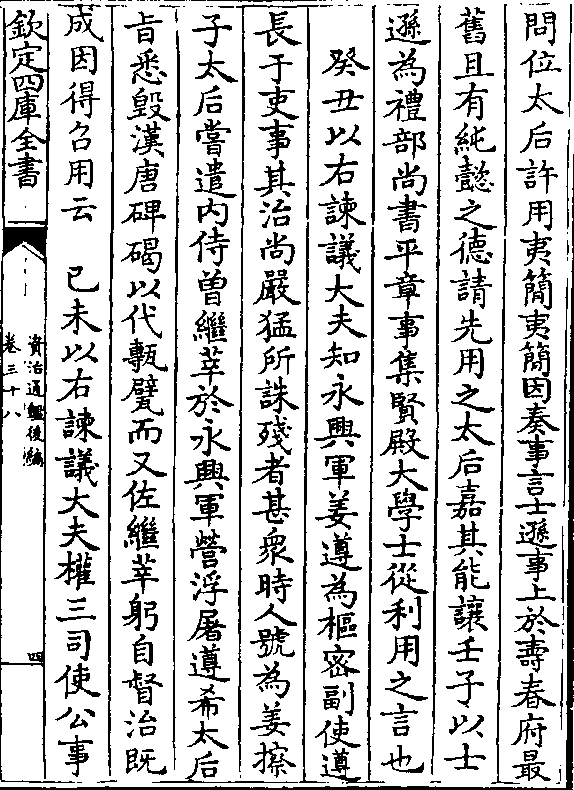 問位太后許用夷簡夷簡因奏事言士遜事上於壽春府最
舊且有純懿之德請先用之太后嘉其能讓壬子以士
遜為禮部尚書平章事集賢殿大學士從利用之言也
癸丑以右諫議大夫知永興軍姜遵為樞密副使遵
長于吏事其治尚嚴猛所誅殘者甚衆時人號為姜擦
子太后嘗遣内侍曾繼莘於永興軍營浮屠遵希太后
㫖悉毀漢唐碑碣以代甎甓而又佐繼莘躬自督治既
成因得召用云　己未以右諫議大夫權三司使公事
欽定四庫全書
資治通鑑後編
卷三十八
四